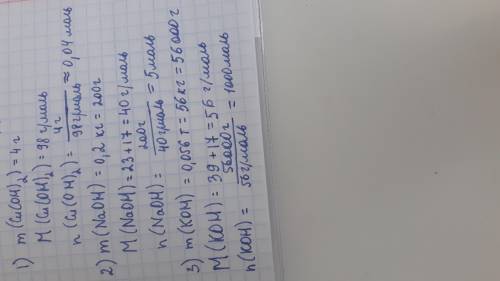 1) m (Cu(OH)₂) = 4 г
M (Cu(OH)₂) = 98 г/моль
n (Cu(OH)₂) = 4г / 98г/моль ≈ 0,04 моль
2) m (NaOH) = 0,2 кг = 200г
M (NaOH) = 23+17 = 40 г/моль
n (NaOH) = 200г / 40г/моль = 5 моль
3) m (KOH) = 0,056 т = 56 кг = 56000 г
M (KOH) = 39+17 = 56 г/моль
n (KOH) = 56000г / 56 г/моль = 1000 моль